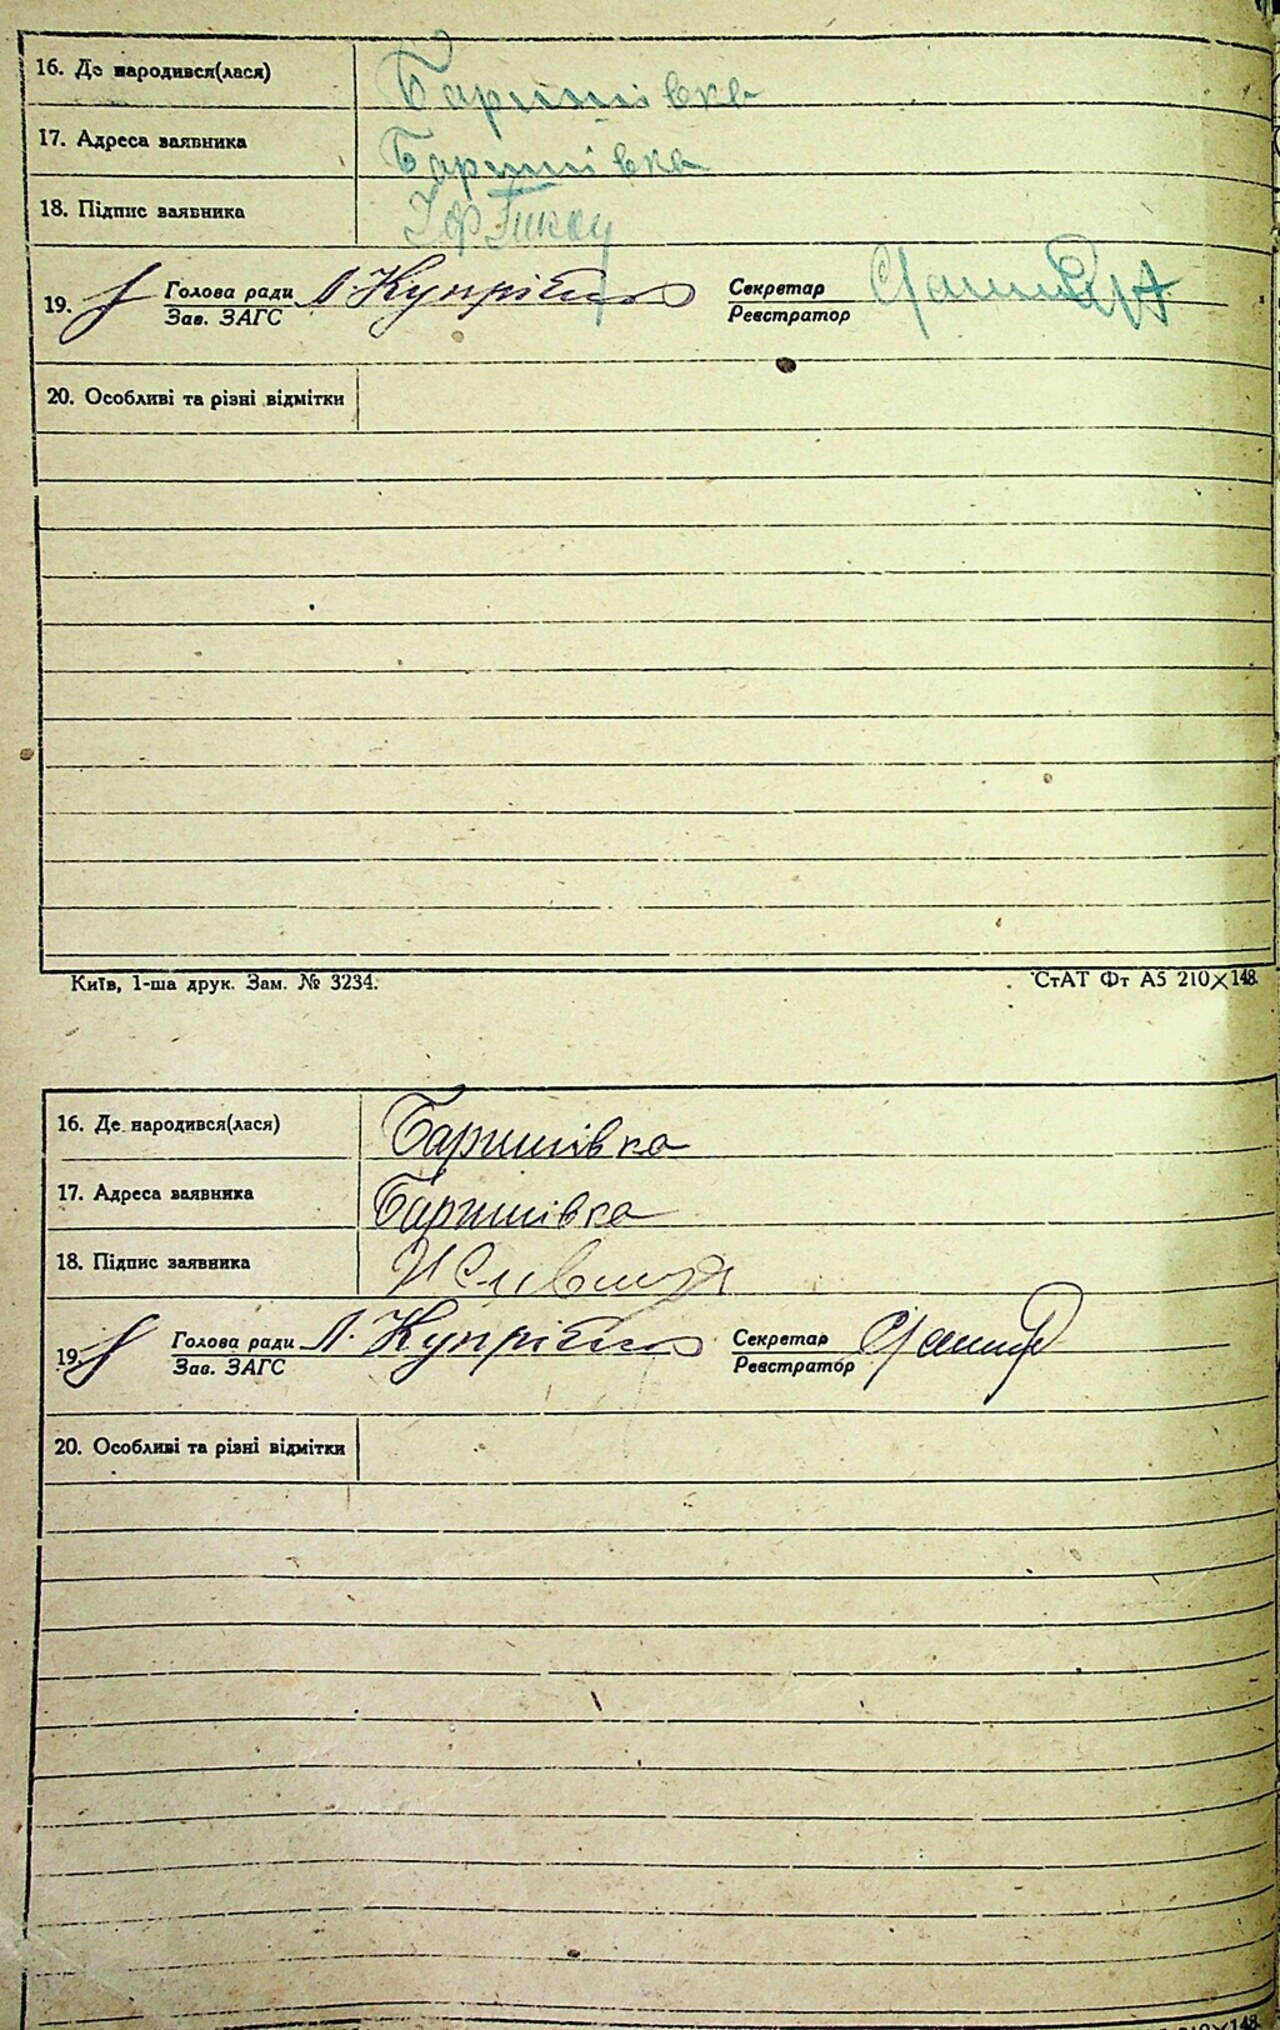 16. Де народився(лася) Баришівка
17. Адреса заявника Баришівка
18. Підпис заявника
19. Голова ради Л. Купрієнко Секретар
Зав. ЗАГС Реєстратор
20. Особливі та різні відмітки
Київ, 1-ша друк. Зам. № 3234. СтАТ Фт А5 210×148.
16. Де народився(лася) Баришівка
17. Адреса заявника Баришівка
18. Підпис заявника
19. Голова ради Л. Купрієнко Секретар
Зав. ЗАГС Реєстратор
20. Особливі та різні відмітки
210×148.